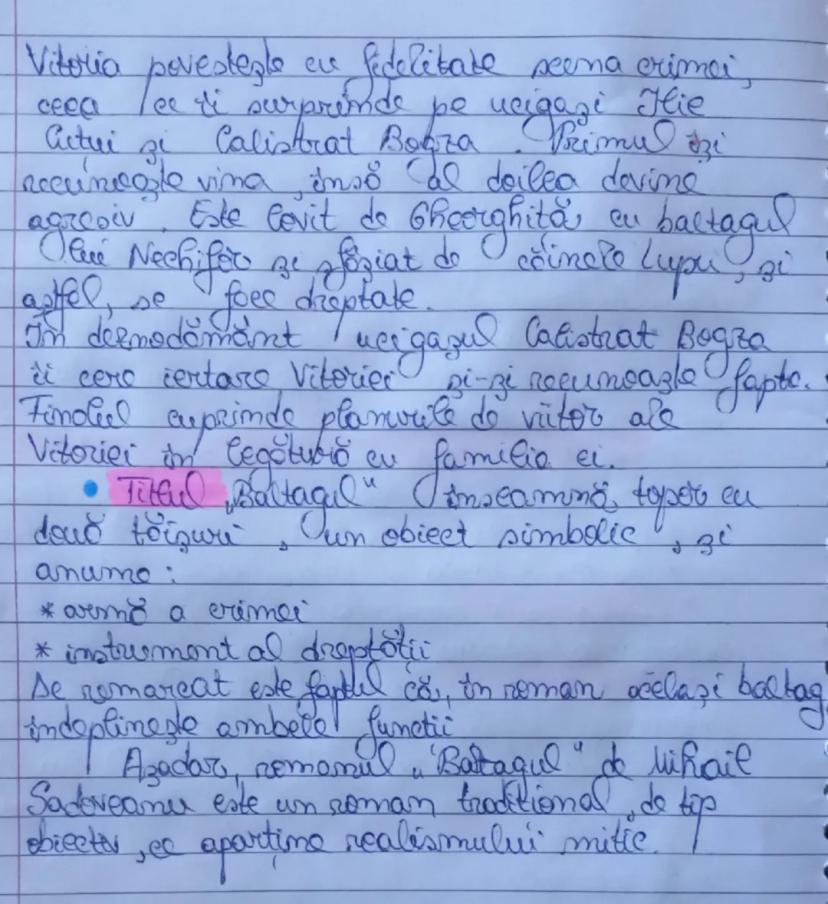 Vitoria povestește cu fidelitate scena crimei,
ceea ce îi surprinde pe ucigași Ilie
Cuțui și Calistrat Bogza. Primul își
recunoaște vina, însă al doilea devine
agresiv. Este lovit de Gheorghiță, cu baltagul
lui Nechifor și sfâșiat de câinele Lupu, și
astfel, se face dreptate.
În deznodământ ucigașul Calistrat Bogza
îi cere iertare Vitoriei și-și recunoaște fapte.
Finalul cuprinde planurile de viitor ale
Vitoriei în legătură cu familia ei.
• Titlul „Baltagul" înseamnă, topor cu
două tăișuri, un obiect simbolic, și
anume:
* armă a crimei
* instrument al dreptății
De remarcat este faptul că, în roman același baltag
îndeplinește ambele funcții
Așadar, romanul „Baltagul" de Mihail
Sadoveanu este un roman tradițional, de tip
obiectiv, ce aparține realismului mitic.